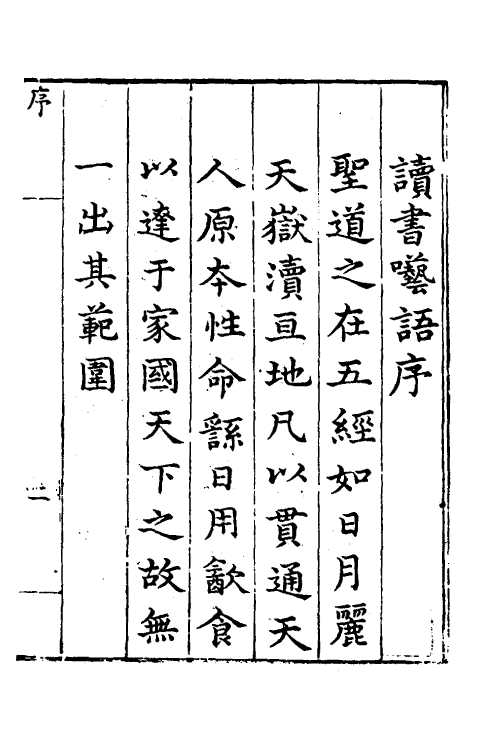 讀書囈語序
聖道之在五經如日月麗
天嶽瀆亘地凡以貫通天
人原本性命繇日用飲食
以達于家國天下之故無
一出其範圍
序
一